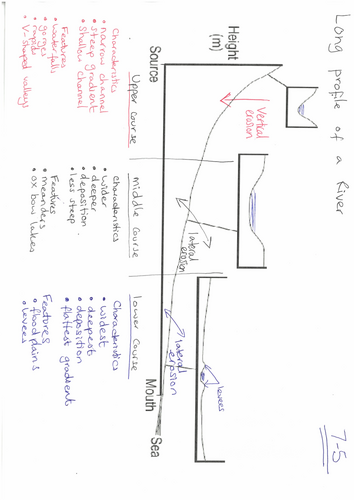 Long profile of a River
7-5
Height
(m)
Vertical
erosion
lateral
erosion
lateral
erosion
levees
Source
Mouth
Sea
Upper Course
Characteristics
• narrow channel
• steep gradient
• shallow channel
Features
• waterfalls
• gorges
• rapids
• V-shaped valleys
middle course
Characteristics
• wider
• deeper
• deposition.
• less steep
Features
• meanders
• ox bow lakes
lower course
Characteristics
• widest
• deepest
• deposition
• flattest gradients
Features
• floodplains
• levees